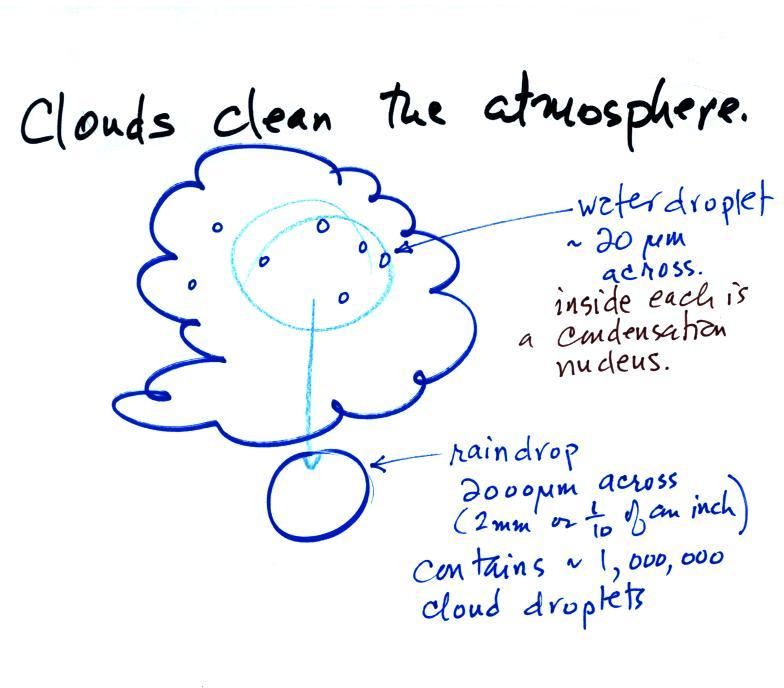 Clouds clean the atmosphere.
water droplet
~ 20 μm
across.
inside each is
a condensation
nucleus.
raindrop
2000μm across
(2mm or 1/10 of an inch)
contains ~ 1,000,000
cloud droplets